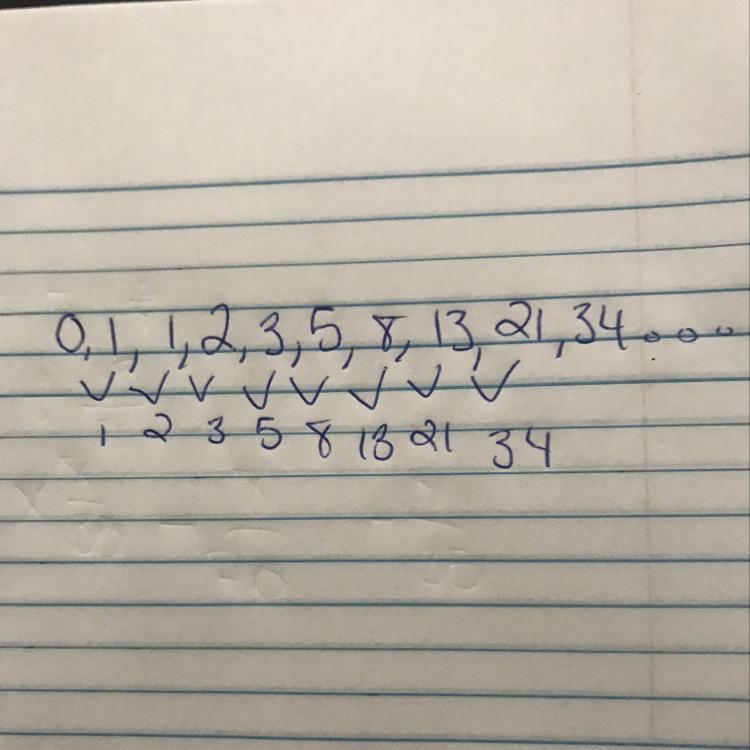 0, 1, 1, 2, 3, 5, 8, 13, 21, 34...
1 2 3 5 8 13 21 34